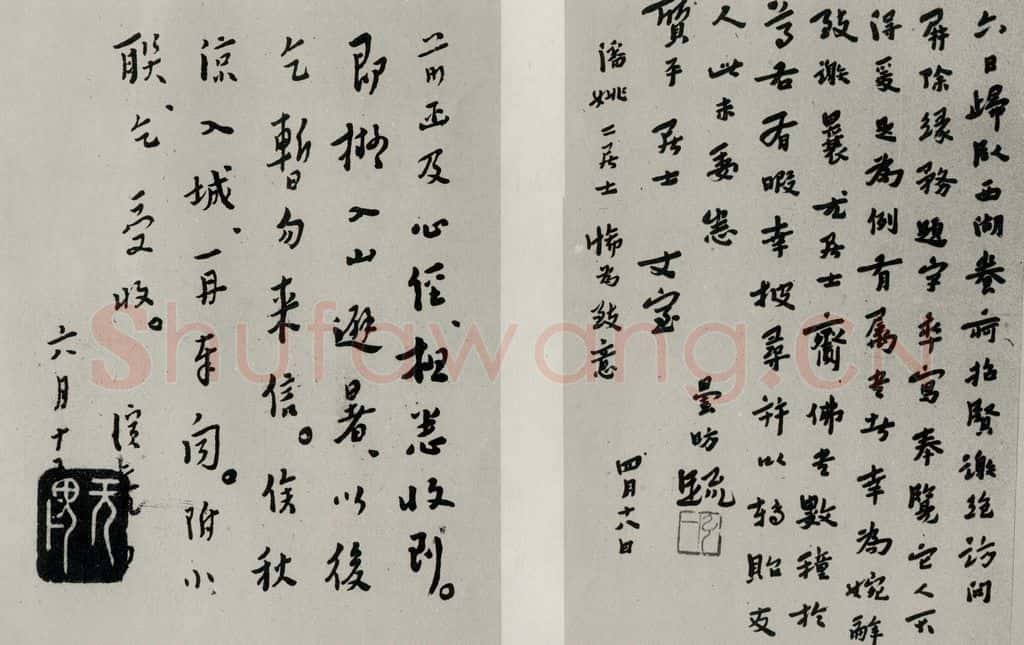 六日歸臥西湖養疴招賢謝絶訪問
屏除緣務題字率寫奉覽它人不
得爰是為例有屬書者幸為婉辭
致謝曩尤居士齎佛書數種於
尊右有暇幸披尋并以轉貽友
人此未委悉
質平居士 丈室
曇昉疏
四月十八日
潘姚二居士 希為致意
前函及心經、拓悉收到。
即擬入山避暑、以後
乞暫勿來信。俟秋
涼入城、再奉聞。附小
聯、乞受收。
演音
六月十五
Shufawang.CN